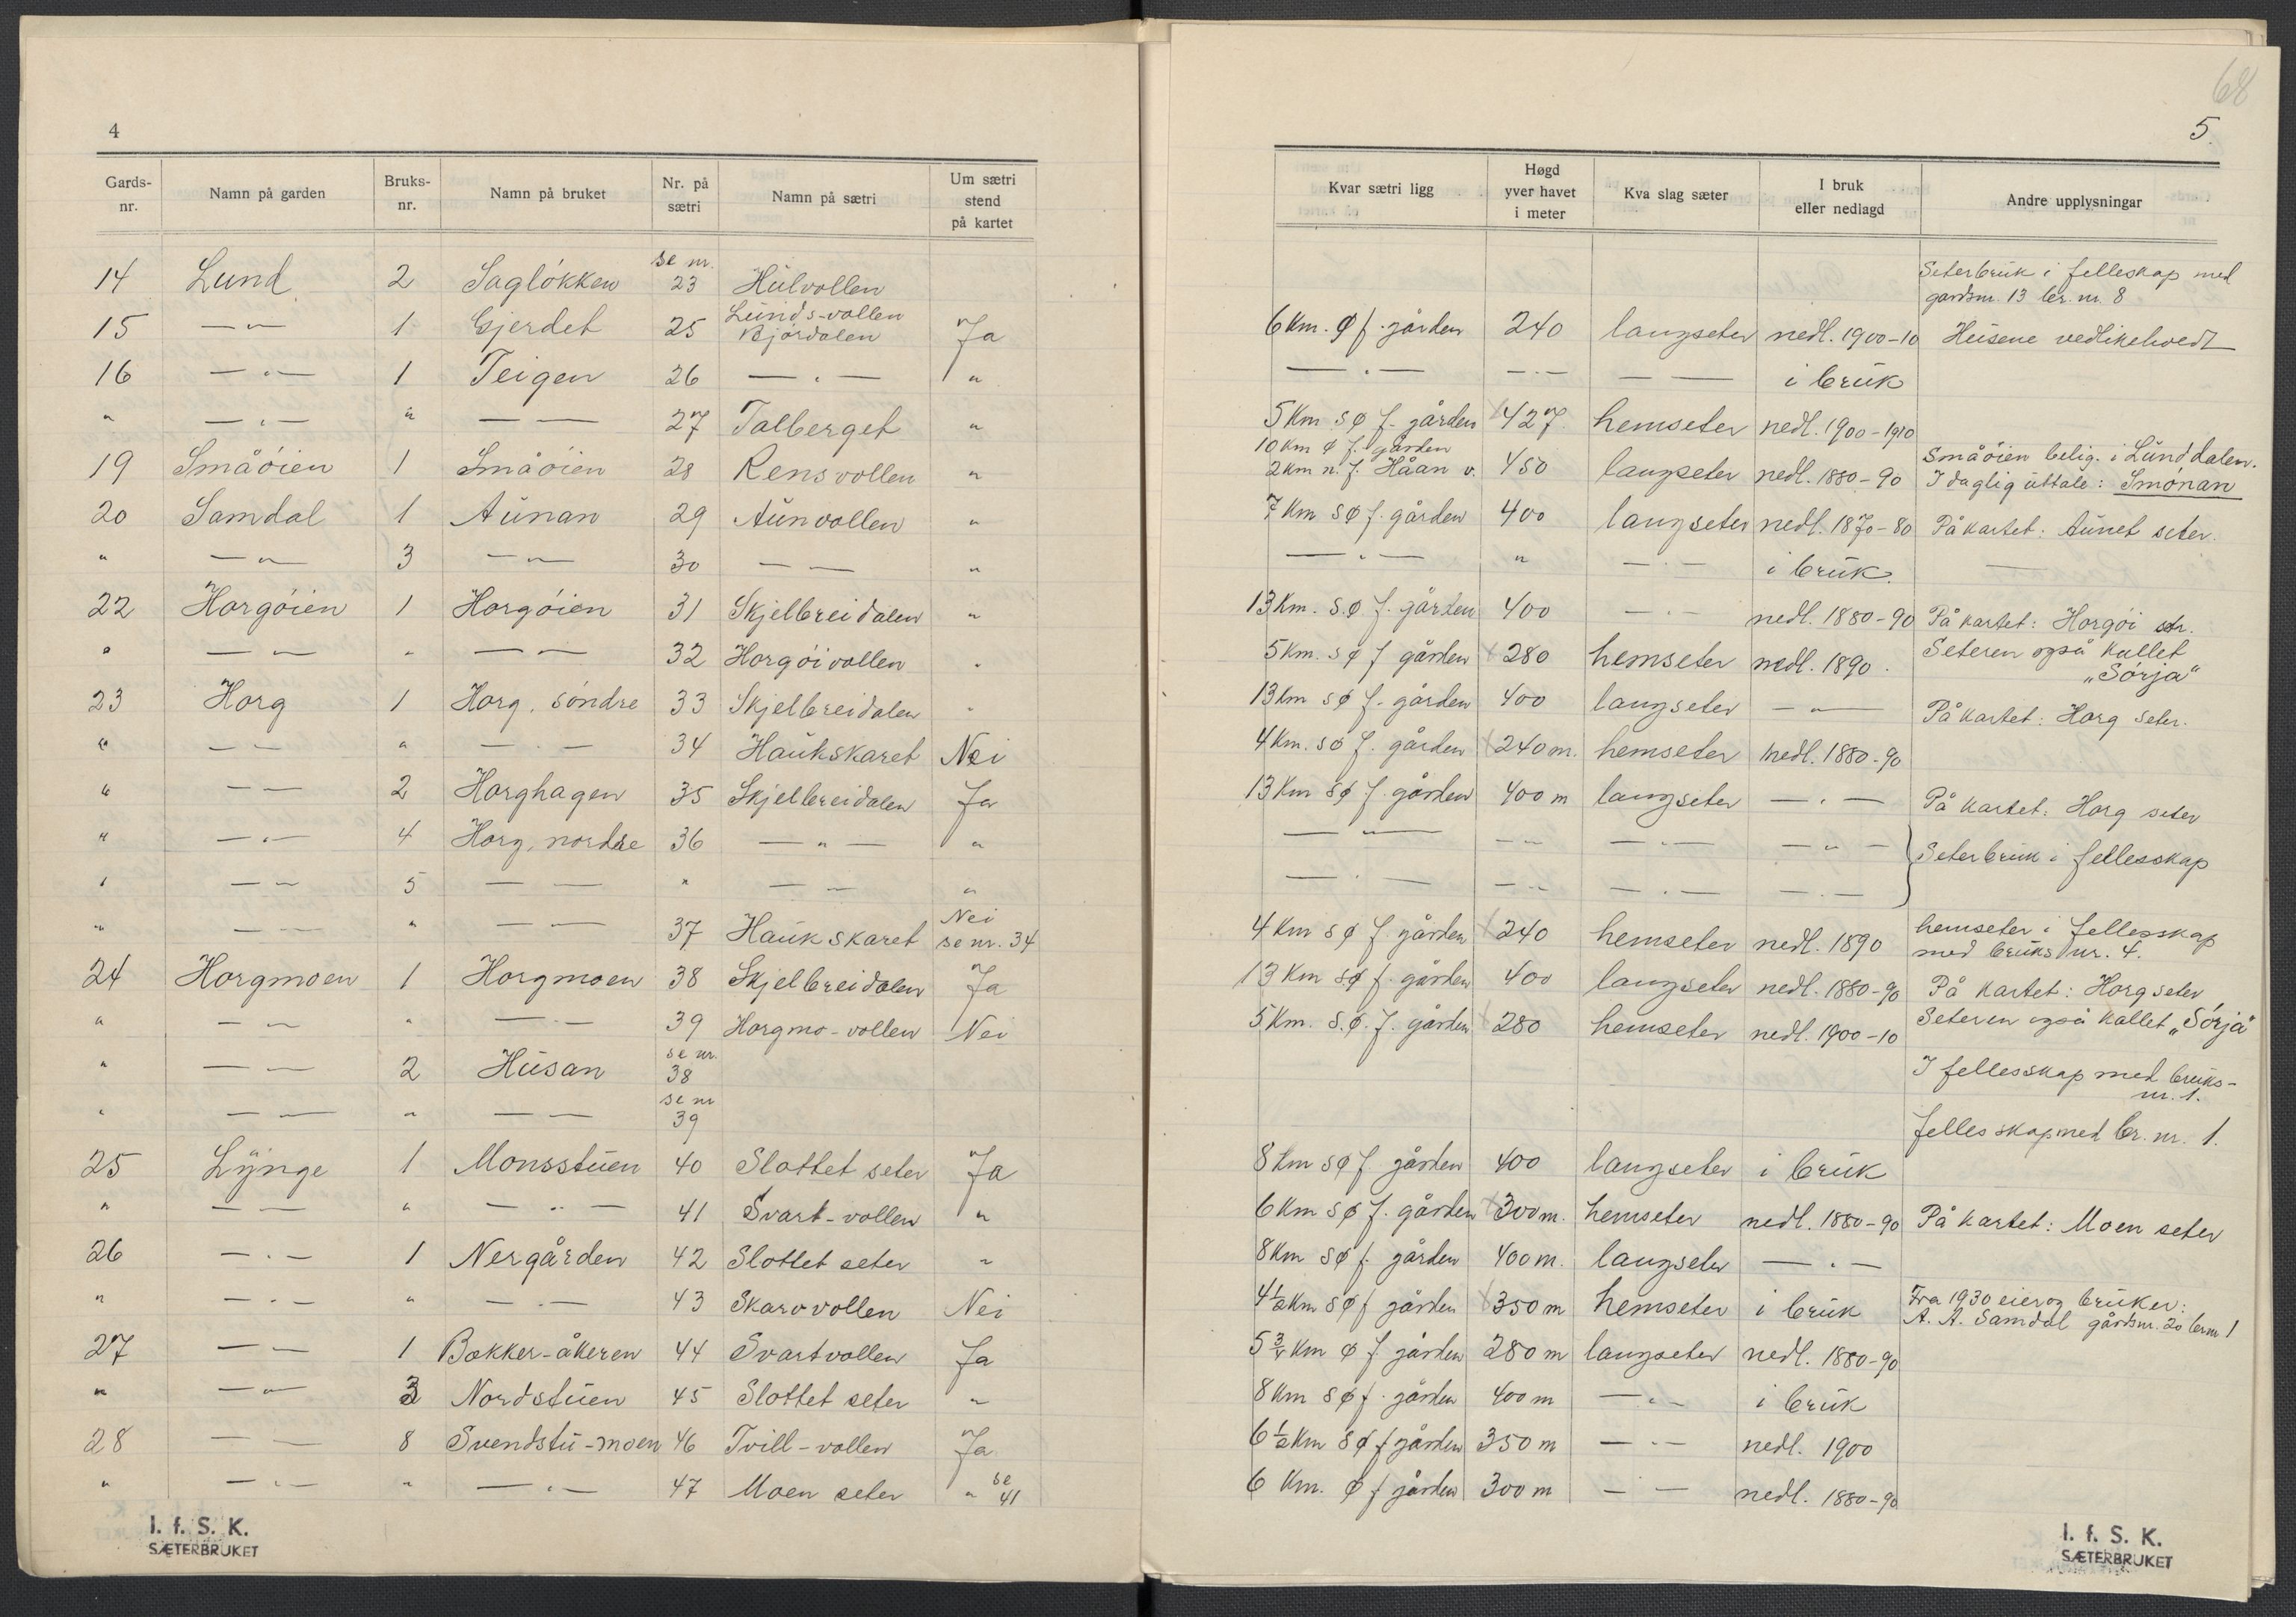 4
Gards-nr. Namn på garden Bruks-nr. Namn på bruket Nr. på sætri Namn på sætri Um sætri stend på kartet
14 Lund 2 Sagløkken se nr. 23 Hulvollen
15 — „ — 1 Gjerdet 25 Lunds-vollen Bjørdalen Ja
16 — „ — 1 Teigen 26 — „ — „
„ — „ — „ — — 27 Talberget „
19 Småøien 1 Småøien 28 Rensvollen „
20 Samdal 1 Aunan 29 Aunvollen „
„ — „ — 3 — „ — 30 — — „
22 Horgøien 1 Horgøien 31 Skjelbreidalen „
„ — „ — „ — — 32 Horgøivollen „
23 Horg 1 Horg, søndre 33 Skjelbreidalen „
„ — — „ — „ — 34 Haukskaret Nei
„ — — 2 Horghagen 35 Skjelbreidalen Ja
„ — „ — 4 Horg, nordre 36 — „ — „
„ — „ — 5 — — „ — „ — „
„ — — „ — — 37 Haukskaret Nei se nr. 34
24 Horgmoen 1 Horgmoen 38 Skjelbreidalen Ja
„ — „ — „ — „ — 39 Horgmo-vollen Nei
„ — „ — 2 Husan se nr. 38
„ — „ — „ — — se nr 39
25 Lynge 1 Monsstuen 40 Slottet seter Ja
„ — — „ — „ — 41 Svart-vollen „
26 — „ — 1 Nergården 42 Slottet seter „
„ — „ — „ — „ — 43 Skarvvollen Nei
27 — — 1 Bakker-åkeren 44 Svartvollen Ja
„ — „ — 3 Nordstuen 45 Slottet seter „
28 — — 8 Svendstu-moen 46 Tvill-vollen Ja
„ — „ — „ — „ — 47 Moen seter „ se 41
I. f. S. K.
SÆTERBRUKET
68
5.
Kvar sætri ligg Høgd yver havet i meter Kva slag sæter I bruk eller nedlagd Andre upplysningar
Seterbruk i felleskap med gardsnr. 13 br. nr. 8
6 km. Ø f. gården 240 langseter nedl. 1900-10 Husene vedlikeholdt
— „ — — „ — — — i bruk
5 km sø f. gården 427 hemseter nedl. 1900-1910
10 km ø f. gården 2 km n. f. Håan v. 450 langseter nedl. 1880-90 Småøien belig. i Lunddalen. I daglig uttale: Smønan
7 km sø f. gården 400 langseter nedl. 1870-80 På kartet: Aunet seter.
— „ — „ — „ — i bruk. —
13 km. s.ø f. gården 400 — „ — nedl. 1880-90 På kartet: Horgøi str.
5 km. sø f gården 280 hemseter nedl. 1890. Seteren også kallet „Sørja“
13 km sø f. gården 400 langseter — „ — På kartet: Horg seter.
4 km. sø f. gården 240 m. hemseter nedl. 1880-90
13 km sø f. gården 400 m langseter — „ — På kartet: Horg seter
— „ — — „ — — „ — — „ — Seterbruk i fellesskap
— „ — — „ — — „ — — „ —
4 km sø f. gården 240 hemseter nedl. 1890 hemseter i fellesskap med bruksnr. 4.
13 km sø f. gården 400 langseter nedl. 1880-90 På kartet: Horg seter
5 km. s.ø. f. gården 280 hemseter nedl. 1900-10 Seteren også kallet „Sørja“
I fellesskap med bruks-nr. 1.
fellesskap med br. nr. 1.
8 km sø f. gården 400 langseter i bruk
6 km sø f. gården 300 m. hemseter nedl. 1880-90 På kartet: Moen seter
8 km sø f. gården 400 m. langseter — „ —
4½ km sø f gården 350 m hemseter i bruk Fra 1930 eier og bruker: A. A. Samdal gårdsnr. 20 brnr 1
5¾ km ø f gården 280 m langseter nedl. 1880-90
8 km sø f. gården 400 m — „ — i bruk
6½ km sø f gården 350 m — „ — nedl. 1900
6 km. ø f gården 300 m — — nedl. 1880-90
I. f. S. K.
SÆTERBRUKET